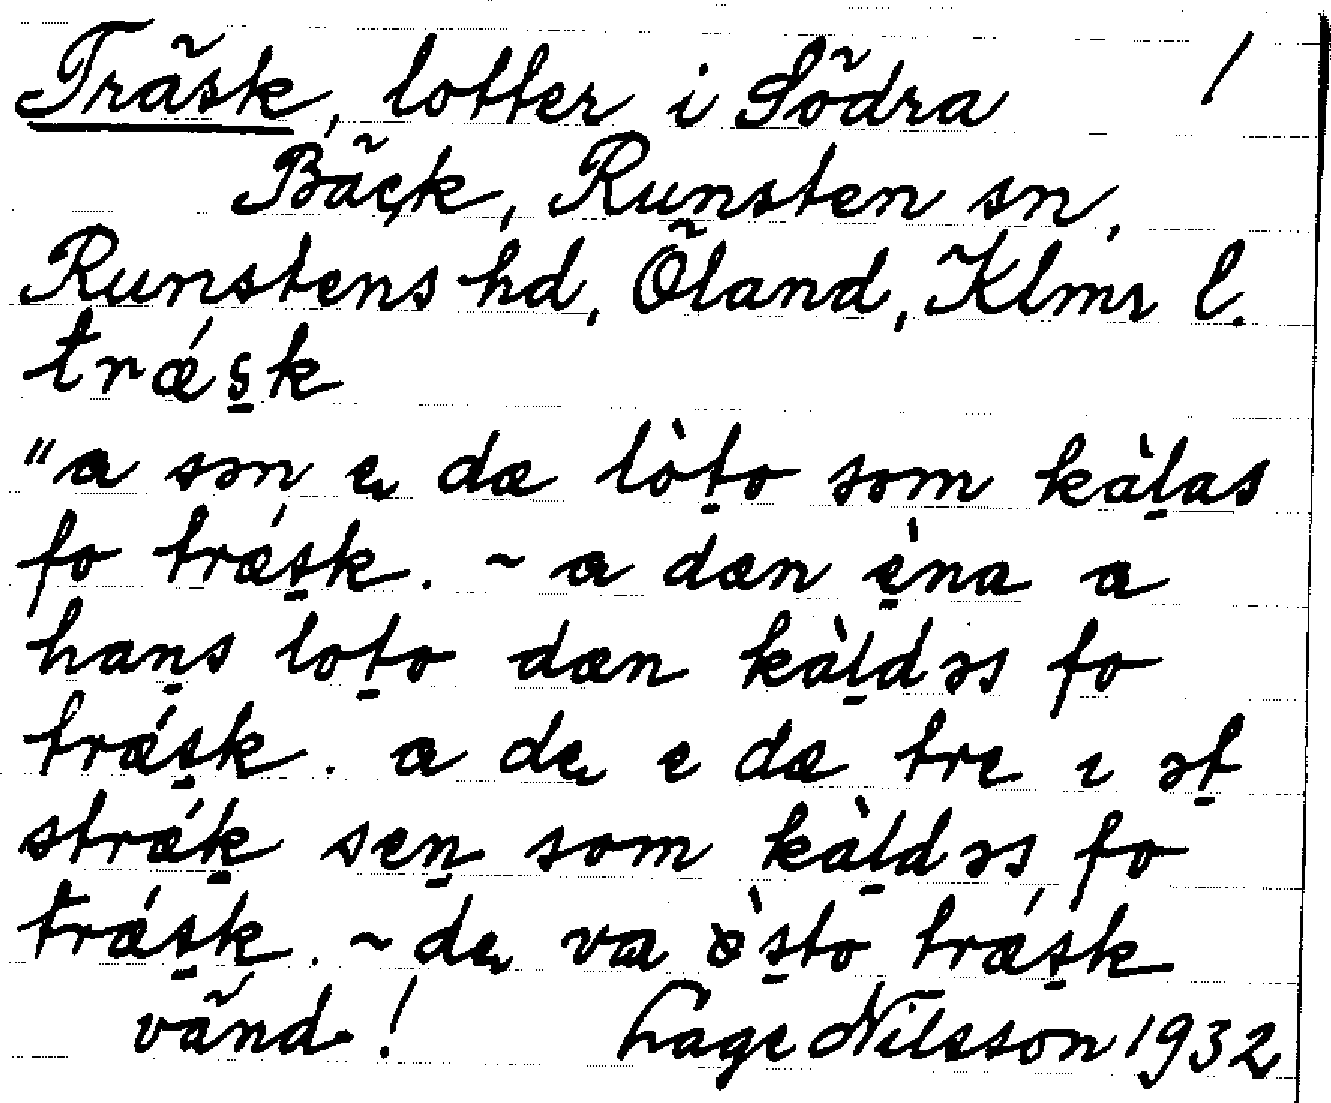 Träsk, lotter i Södra /
Bäck, Runsten sn,
Runstens hd, Öland, Klmr l.
trǽsk
"a sən ɛ dæ lòto som kàlas
fo trǽsk. ~ a dæn èna a
hans loto dæn kàldəs fo
trǽsk. a de e dæ tre ı ət
strǽk sen som kàldəs fo
trǽsk. ~ de va òsto trǽsk
vänd! Lage Nilsson 1932